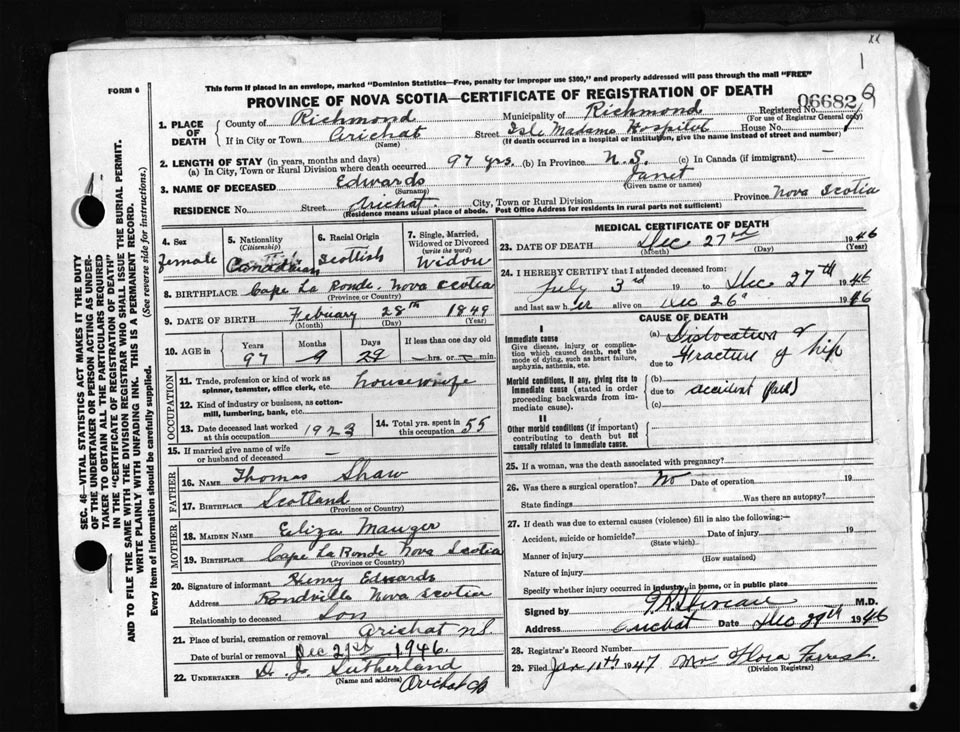 1
FORM 6
This form if placed in an envelope, marked "Dominion Statistics—Free, penalty for improper use $300," and properly addressed will pass through the mail "FREE"
PROVINCE OF NOVA SCOTIA—CERTIFICATE OF REGISTRATION OF DEATH
06682
1. PLACE OF DEATH
County of Richmond Municipality of Richmond Registered No.
(For use of Registrar General only)
If in City or Town Arichat Street Isle Madame Hospital House No.
(Name) (If death occurred in a hospital or institution, give the name instead of street and number)
2. LENGTH OF STAY (in years, months and days)
(a) In City, Town or Rural Division where death occurred 97 yrs. (b) In Province N.S. (c) In Canada (if immigrant) —
3. NAME OF DECEASED Edwards Janet
(Surname) (Given name or names)
RESIDENCE No. Street Arichat City, Town or Rural Division Province Nova Scotia
(Residence means usual place of abode. Post Office Address for residents in rural parts not sufficient)
4. Sex
female
5. Nationality
(Citizenship)
Canadian
6. Racial Origin
Scottish
7. Single, Married, Widowed or Divorced
(write the word)
Widow
8. BIRTHPLACE Cape La Ronde. Nova Scotia
(Province or Country)
9. DATE OF BIRTH Febuary 28th 1849
(Month) (Day) (Year)
10. AGE in
Years Months Days If less than one day old
97 9 29 hrs. or min.
OCCUPATION
11. Trade, profession or kind of work as
spinner, teamster, office clerk, etc. housewife
12. Kind of industry or business, as cotton-
mill, lumbering, bank, etc.
13. Date deceased last worked
at this occupation 1923
14. Total yrs. spent in
this occupation 55
15. If married give name of wife
or husband of deceased —
FATHER
16. NAME Thomas Shaw
17. BIRTHPLACE Scotland
(Province or Country)
MOTHER
18. MAIDEN NAME Eliza Mauger
19. BIRTHPLACE Cape La Ronde Nova Scotia
(Province or Country)
20. Signature of informant Henry Edwards
Address Rondville Nova Scotia
Relationship to deceased Son
21. Place of burial, cremation or removal Arichat N.S.
Date of burial or removal Dec 1946
22. UNDERTAKER D. J. Sutherland
(Name and address) Arichat
MEDICAL CERTIFICATE OF DEATH
23. DATE OF DEATH Dec 27 1946
(Month) (Day) (Year)
24. I HEREBY CERTIFY that I attended deceased from:
July 3rd 19 to Dec 27th 1946
and last saw her alive on Dec 26 1946
CAUSE OF DEATH
I
Immediate cause
Give disease, injury or complica-
tion which caused death, not the
mode of dying, such as heart failure,
asphyxia, asthenia, etc.
(a) Dislocation &
due to Fracture of hip
Morbid conditions, if any, giving rise to
immediate cause (stated in order
proceeding backwards from im-
mediate cause).
(b)
due to accident (fall)
(c)
II
Other morbid conditions (if important)
contributing to death but not
causally related to immediate cause.
25. If a woman, was the death associated with pregnancy?
26. Was there a surgical operation? No Date of operation 19
State findings Was there an autopsy?
27. If death was due to external causes (violence) fill in also the following:—
Accident, suicide or homicide? Date of injury 19
(State which)
Manner of injury
(How sustained)
Nature of injury
Specify whether injury occurred in industry, in home, or in public place
Signed by M.D.
Address Arichat Date Dec 1946
28. Registrar's Record Number
29. Filed Jan 11th 1947 Mrs Flora Forrest.
(Division Registrar)
SEC. 46—VITAL STATISTICS ACT MAKES IT THE DUTY
OF THE UNDERTAKER OR PERSON ACTING AS UNDER-
TAKER TO OBTAIN ALL THE PARTICULARS REQUIRED
IN THE "CERTIFICATE OF REGISTRATION OF DEATH"
AND TO FILE THE SAME WITH THE DIVISION REGISTRAR WHO SHALL ISSUE THE BURIAL PERMIT.
WRITE PLAINLY WITH UNFADING INK. THIS IS A PERMANENT RECORD.
Every item of information should be carefully supplied. (See reverse side for instructions.)